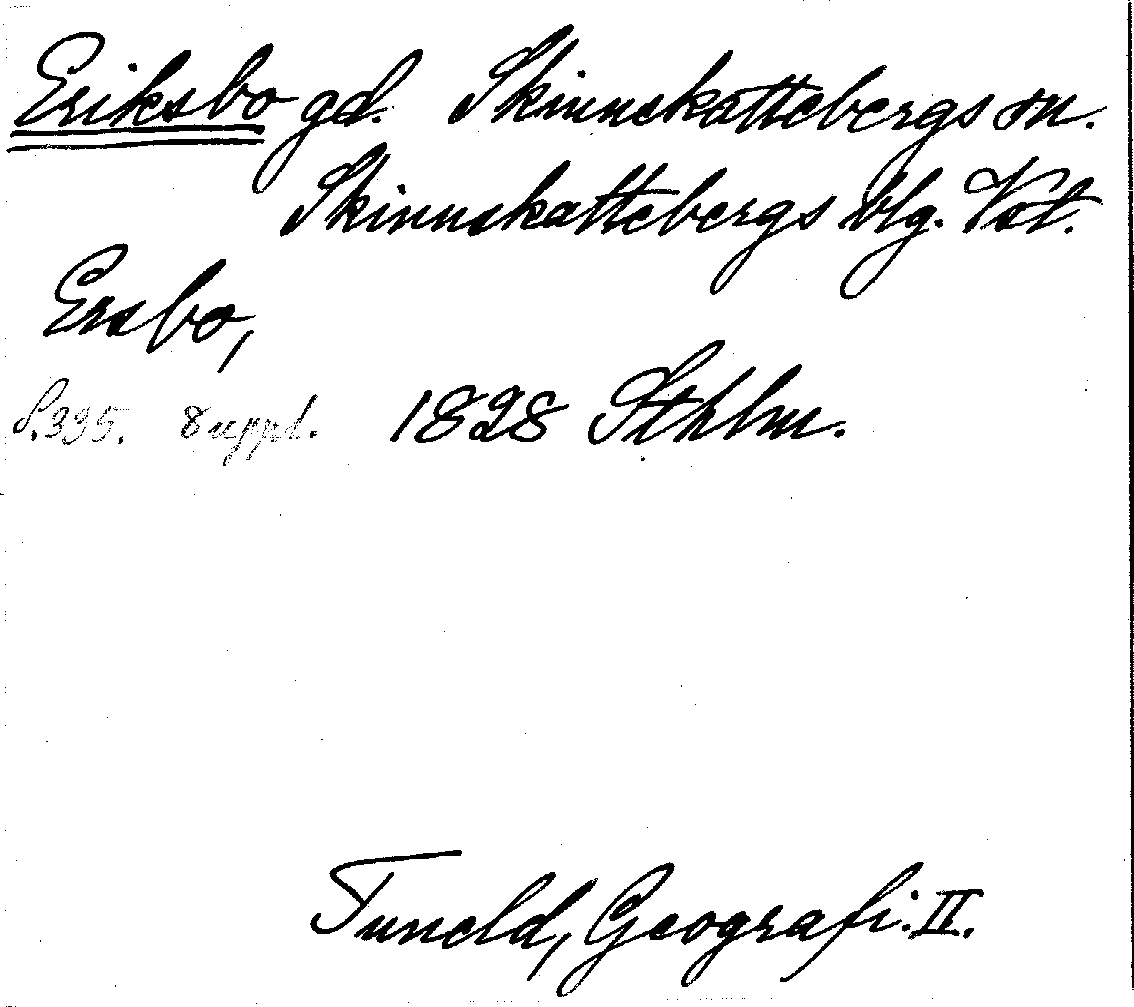 Eriksbo gd. Skinnskattebergs sn.
Skinnskattebergs blg. Vst.
Ersbo,
S. 395. 8 uppl. 1828 Sthlm.
Tuneld, Geografi. II.